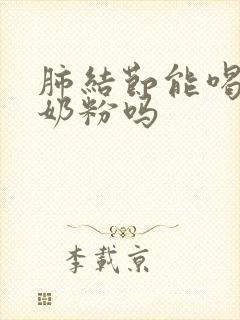 肺結節能喝
奶粉吗
李載京